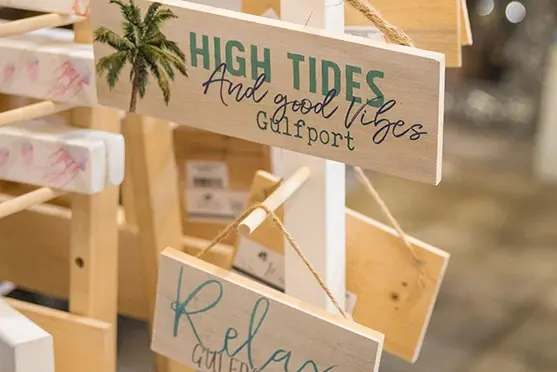 HIGH TIDES
And good Vibes
Gulfport
Relax